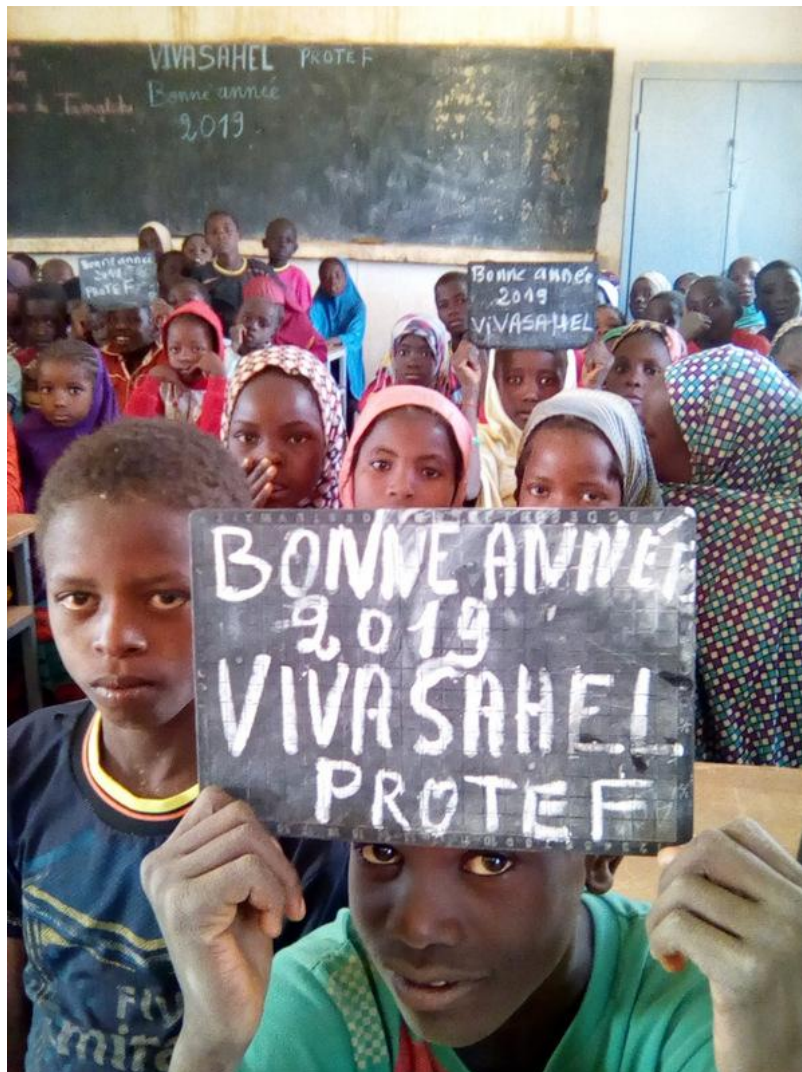 VIVASAHEL PROTEF
Bonne année
2019
Bonne année
2019
PROTEF
Bonne année
2019
VIVASAHEL
BONNE ANNÉE
2019
VIVASAHEL
PROTEF
Fly
Emirates